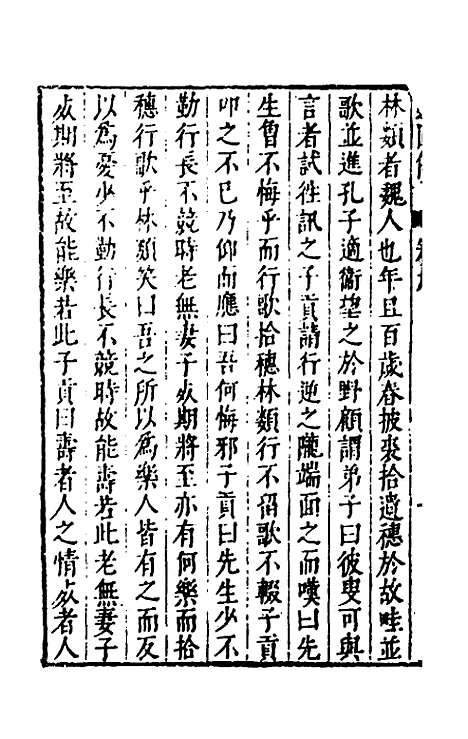 林類者魏人也年且百歲春披裘拾遺穗於故畦並
歌並進孔子適衞望之於野顧謂弟子曰彼叟可與
言者試徃訊之子貢請行逆之隴端面之而嘆曰先
生曾不悔乎而行歌拾穗林類行不留歌不輟子貢
叩之不已乃仰而應曰吾何悔邪子貢曰先生少不
勤行長不競時老無妻子死期將至亦有何樂而拾
穗行歌乎林類笑曰吾之所以為樂人皆有之而反
以為憂少不勤行長不競時故能壽若此老無妻子
死期將至故能樂若此子貢曰壽者人之情死者人